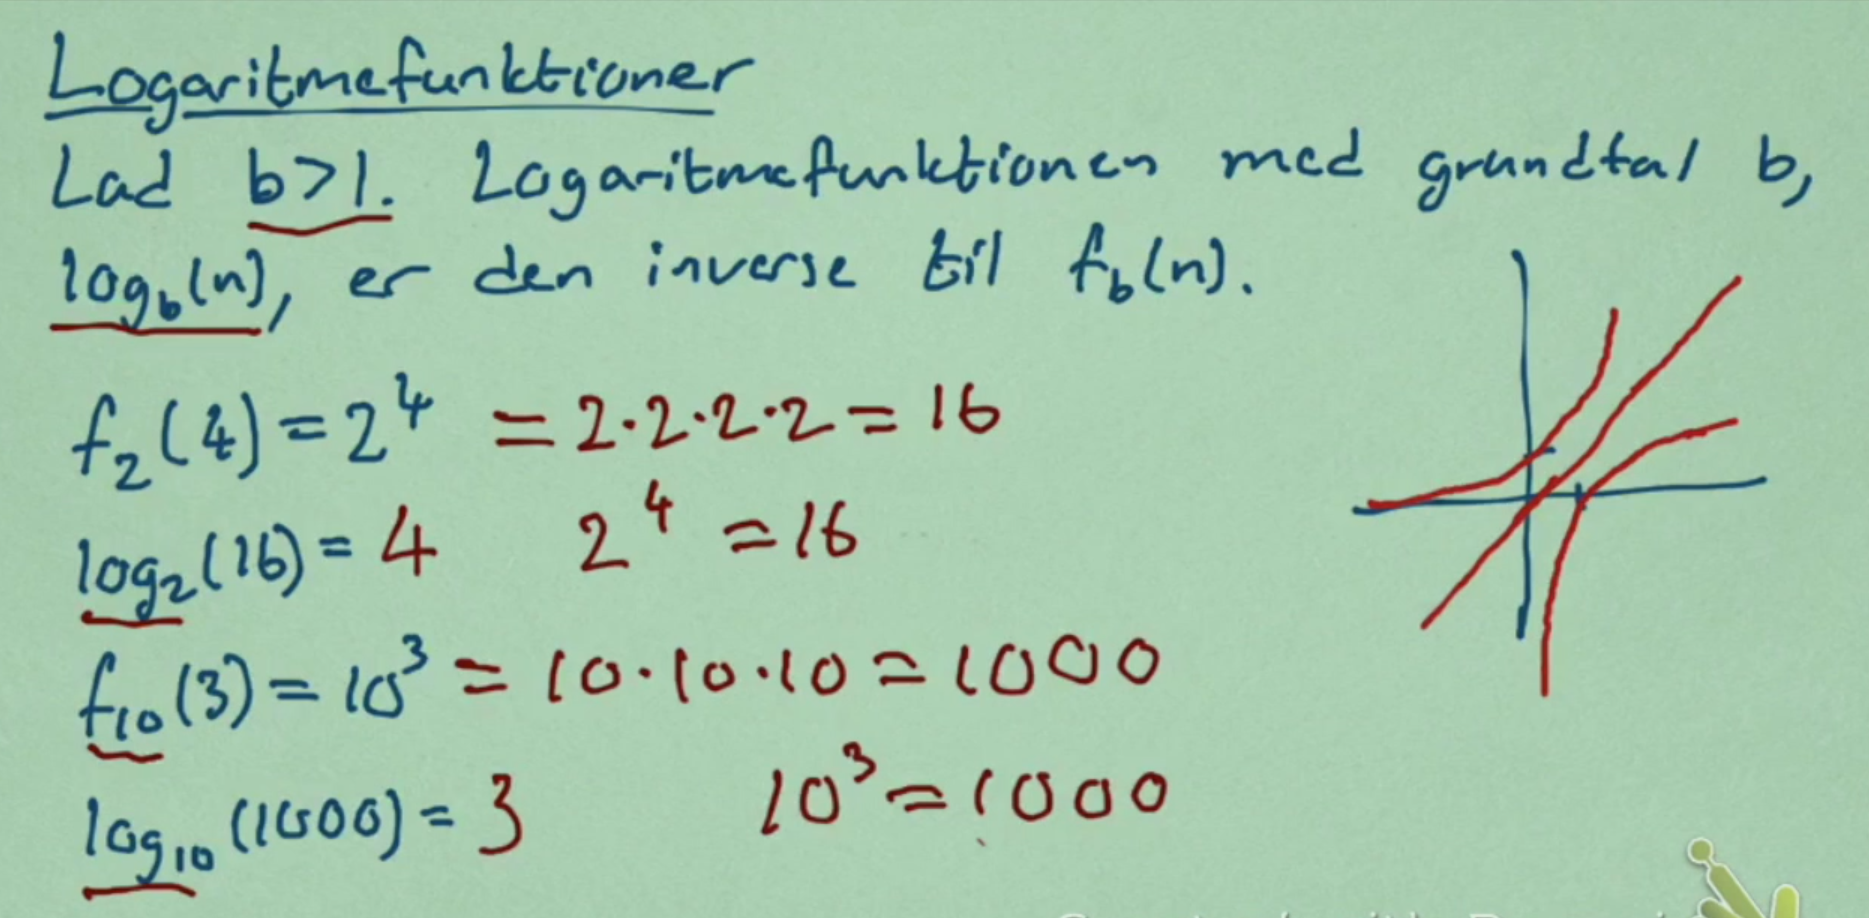 Logaritmefunktioner
Lad b>1. Logaritmefunktionen med grundtal b,
log_b(n), er den inverse til f_b(n).
f_2(4) = 2^4 = 2·2·2·2 = 16
log_2(16) = 4 2^4 = 16
f_10(3) = 10^3 = 10·10·10 = 1000
log_10(1000) = 3 10^3 = 1000